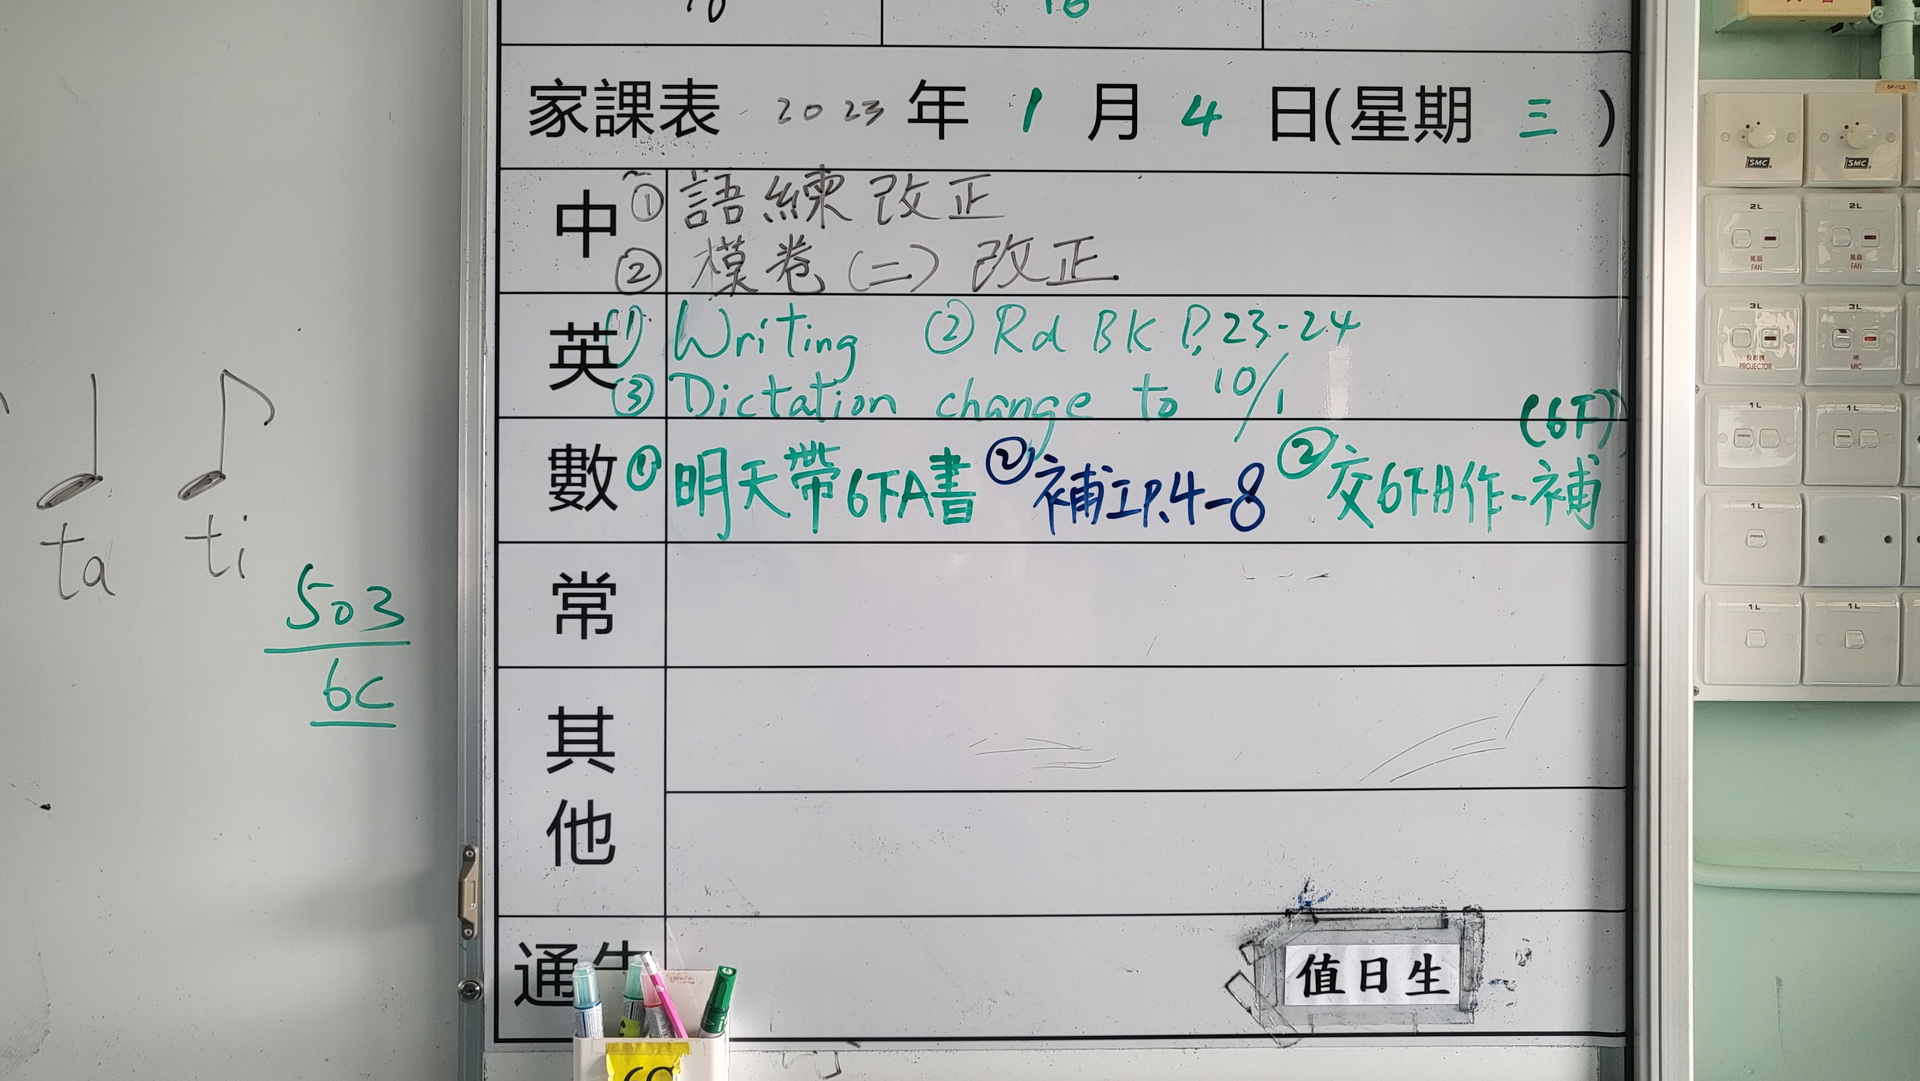 家課表 2023 年 1 月 4 日(星期 三 )
中 ① 語練改正
② 模卷(二)改正
英 ① Writing ② Rd BK P.23-24
③ Dictation change to 10/1
(6下)
數 ① 明天帶6下A書 ② 補工P.4-8 ② 交6下A作-補
常
其他
通告
值日生
ta ti
503
6C
SMC SMC
2L 2L
風扇 FAN 風扇 FAN
3L 3L
投影機 PROJECTOR 咪 MIC
1L 1L
PRESS
1L
PRESS
1L 1L